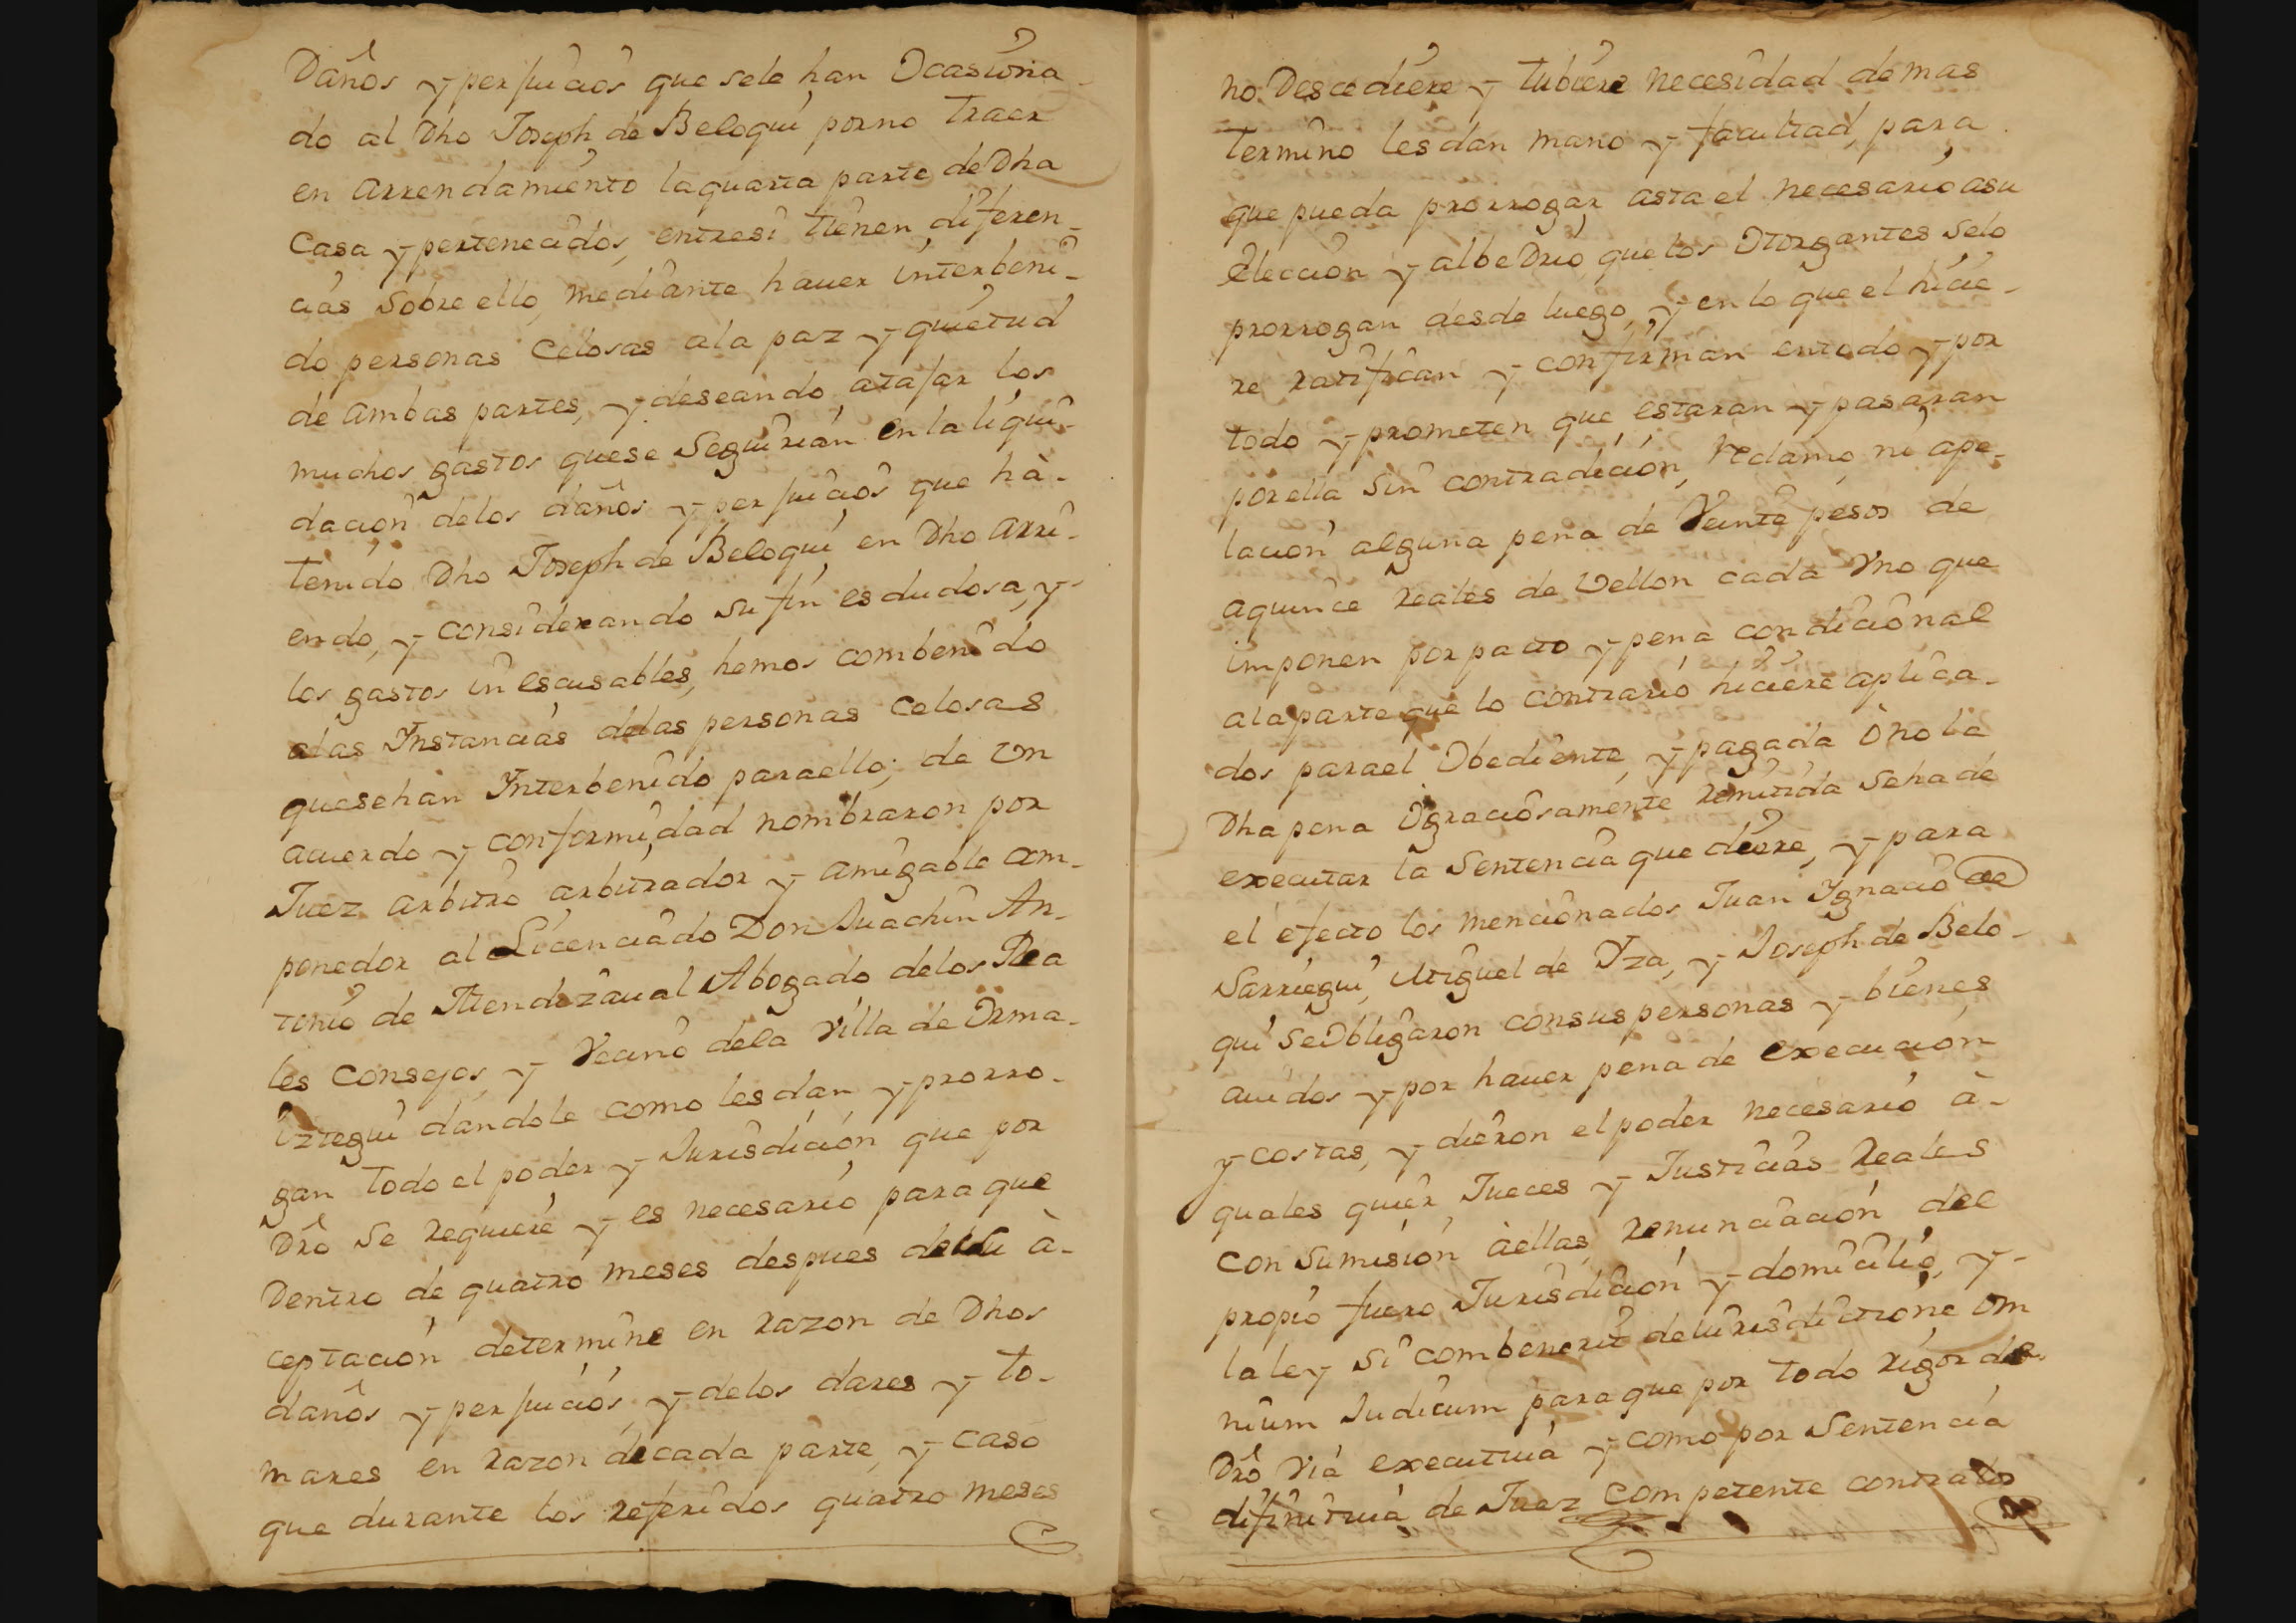 Daños y perjuicios que sele han Ocasiona
do al Dho Joseph de Beloqui porno traer
en arrendamiento laquarta parte de Dha
Casa y pertenecidos, entresi tienen diferen-
cias sobre ello, mediante hauer interbeni-
do personas Celosas ala paz y quietud
de ambas partes, y deseando atajar los
muchos gastos quese seguirian en la liqui-
dacion delos daños y perjuicios que hà-
tenido Dho Joseph de Beloqui en Dho arri-
endo, y considerando su fin es dudosa, y-
los gastos in escusables, hemos combenido
alas Ynstancias delas personas Celosas
quesehan Ynterbenido paraello; de Un
acuerdo y conformidad nombraron por
Juez arbitro arbitrador y amigable com-
ponedor al Licenciado Don Juachin An-
tonio de Mendizaual Abogado delos Rea
les Consejos, y Vecino dela Villa de Orma-
iztegui dandole como lesdan y prorro-
gan todo el poder y Jurisdicion que por
Dro se requiere y es necesario paraque
Dentro de quatro meses despues de su à-
ceptacion determine en razon de Dhos
daños y perjuicios, y delos dares y to-
mares en razon decada parte, y caso
que durante los referidos quatro meses
no Descediere y tubiere necesidad demas
termino lesdan mano y facultad, para
que pueda prorrogar asta el necesario asu
Eleccion y albeDrio, quelos Otorgantes selo
prorrogan desde luego, y en lo que el hicie-
re ratifican y confirman entodo y por
todo y prometen que estaran y pasaran
porella sin contradicion, reclamo, ni ape-
lacion alguna pena de Veinte pesos de
aquince reales de Vellon cada Vno que
imponen por pacto y pena condicional
alaparte que lo contrario hiciere aplica-
dos parael Obediente, y pagada Ono la
Dha pena Ograciosamente remitida sehade
executar la sentencia que diere, y para
el efecto los mencionados Juan Ygnacio de
Sarriegui, Miguel de Yza, y Joseph de Belo-
qui seObligaron consus personas y bienes
auidos y por hauer pena de execucion
y costas, y dieron el poder necesario à-
quales quier Jueces y Justicias Reales
con sumision àellas, renunciacion del
propio fuero Jurisdicion y domicilio, y-
la ley si combenerit deiurisdictione om
nium Judicum paraque por todo rigor de
Dro Via executiua y como por Sentencia
difinitiua de Juez competente contralos